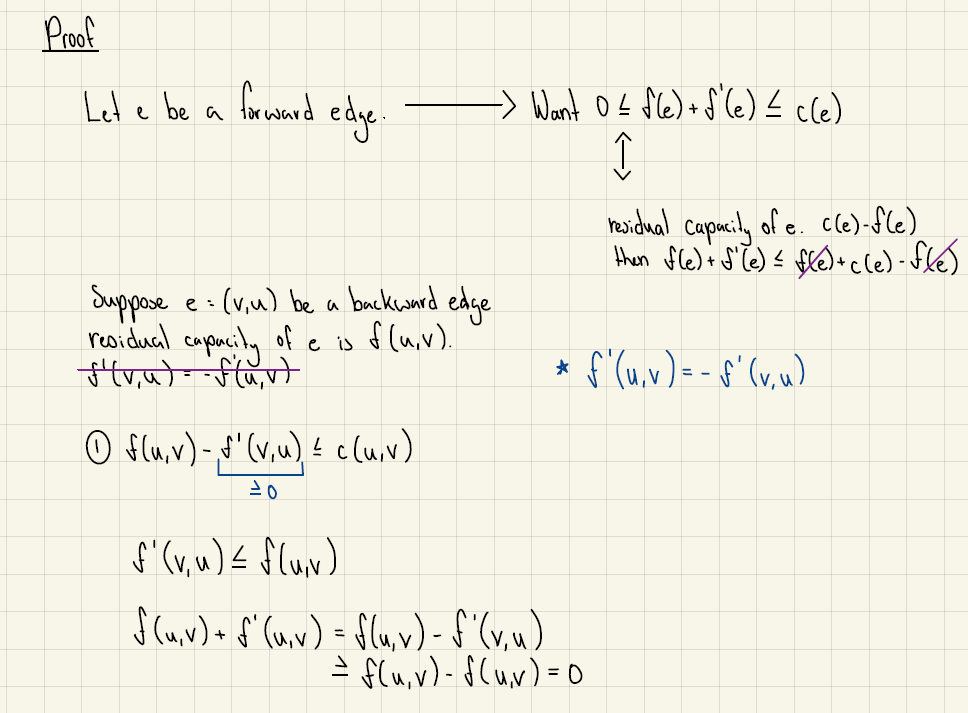 Proof
Let e be a forward edge. ⟶ Want 0 ≤ f(e) + f'(e) ≤ c(e)
↕
residual capacity of e. c(e) - f(e)
then f(e) + f'(e) ≤ f(e) + c(e) - f(e)
Suppose e = (v,u) be a backward edge
residual capacity of e is f(u,v).
f'(v,u) = -f'(u,v)
* f'(u,v) = - f'(v,u)
① f(u,v) - f'(v,u) ≤ c(u,v)
≥ 0
f'(v,u) ≤ f(u,v)
f(u,v) + f'(u,v) = f(u,v) - f'(v,u)
≥ f(u,v) - f(u,v) = 0